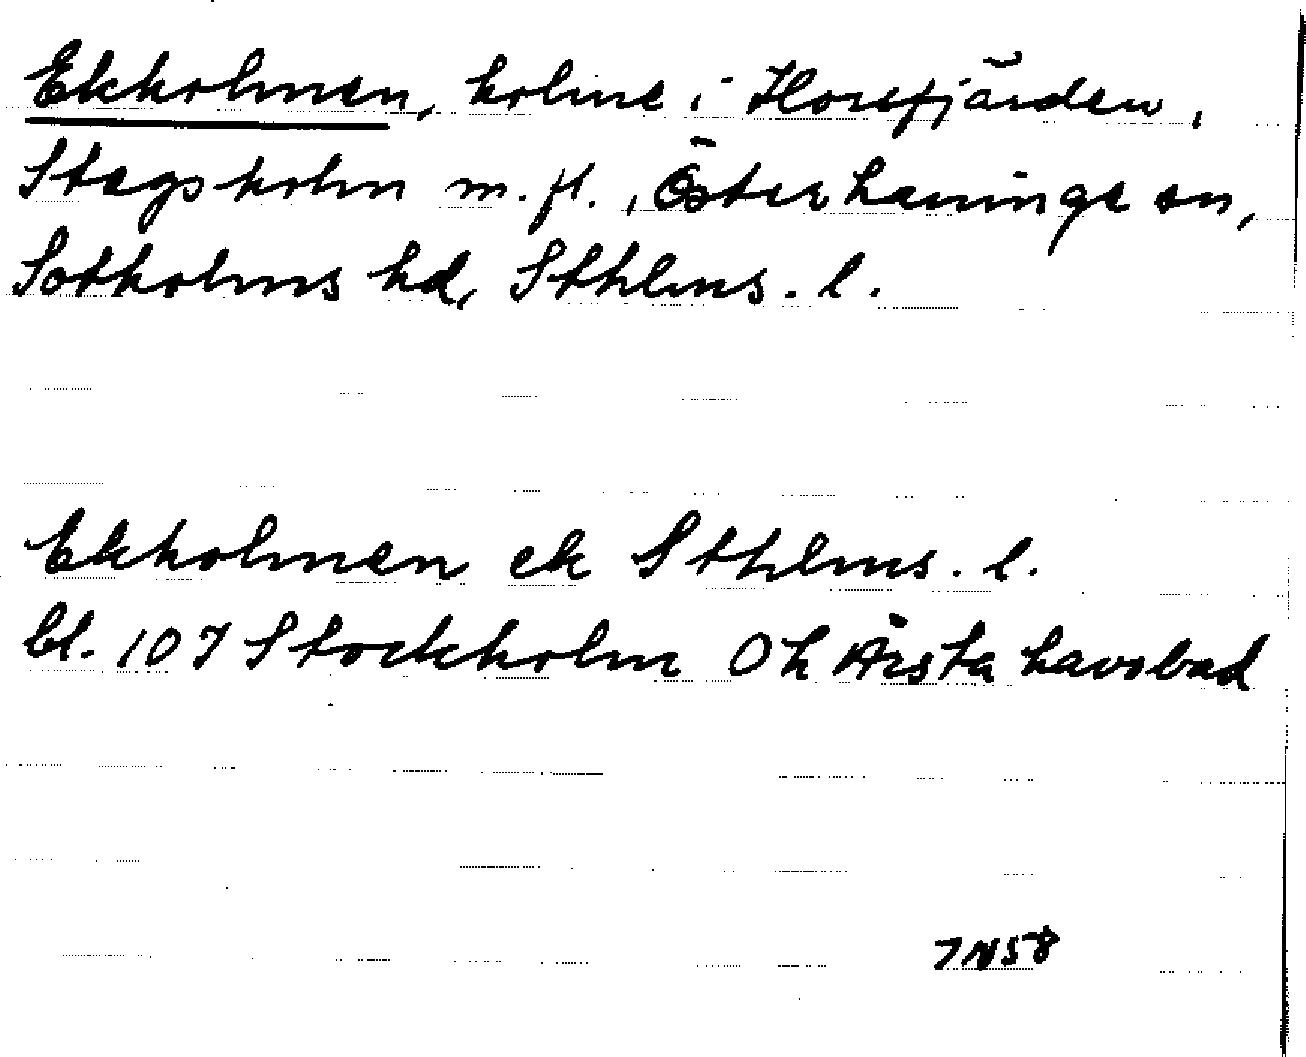 Ekholmen, holme i Horsfjärden,
Stegsholm m. fl., Österhaninge sn,
Sotholms hd, Sthlms. l.
Ekholmen ek Sthlms. l.
bl. 107 Stockholm OÅ Årsta havsbad